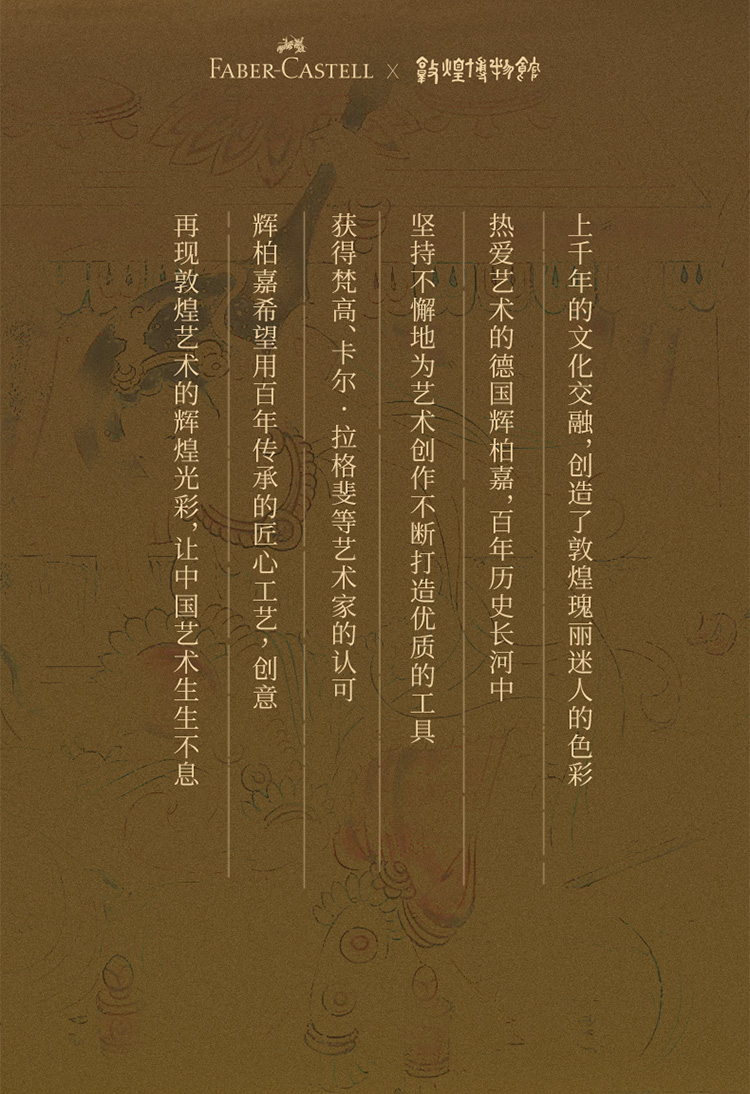 FABER-CASTELL X 敦煌博物館
上千年的文化交融，创造了敦煌瑰丽迷人的色彩
热爱艺术的德国辉柏嘉，百年历史长河中
坚持不懈地为艺术创作不断打造优质的工具
获得梵高、卡尔·拉格斐等艺术家的认可
辉柏嘉希望用百年传承的匠心工艺，创意
再现敦煌艺术的辉煌光彩，让中国艺术生生不息